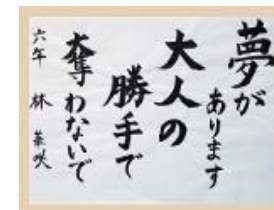 夢が
あります
大人の
勝手で
奪わないで
六年 林 菜咲